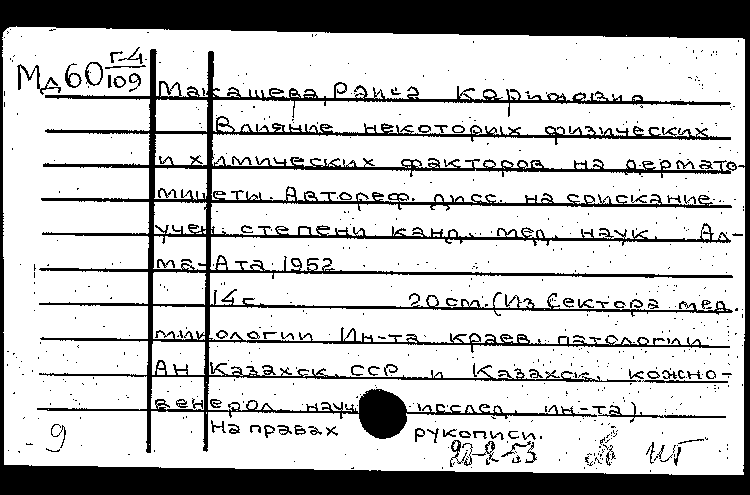 Мд60 Г-4/109
Макашева, Раиса Каримовна
Влияние некоторых физических
и химических факторов на дермато-
мицеты. Автореф. дисс. на соискание
учен. степени канд. мед. наук. Ал-
ма-Ата, 1952
14 с. 20 cm. (Из Сектора мед.
микологии Ин-та краев. патологии
АН Казахск. ССР и Казахск. кожно-
венерол. науч исслед. ин-та).
На правах рукописи.
9